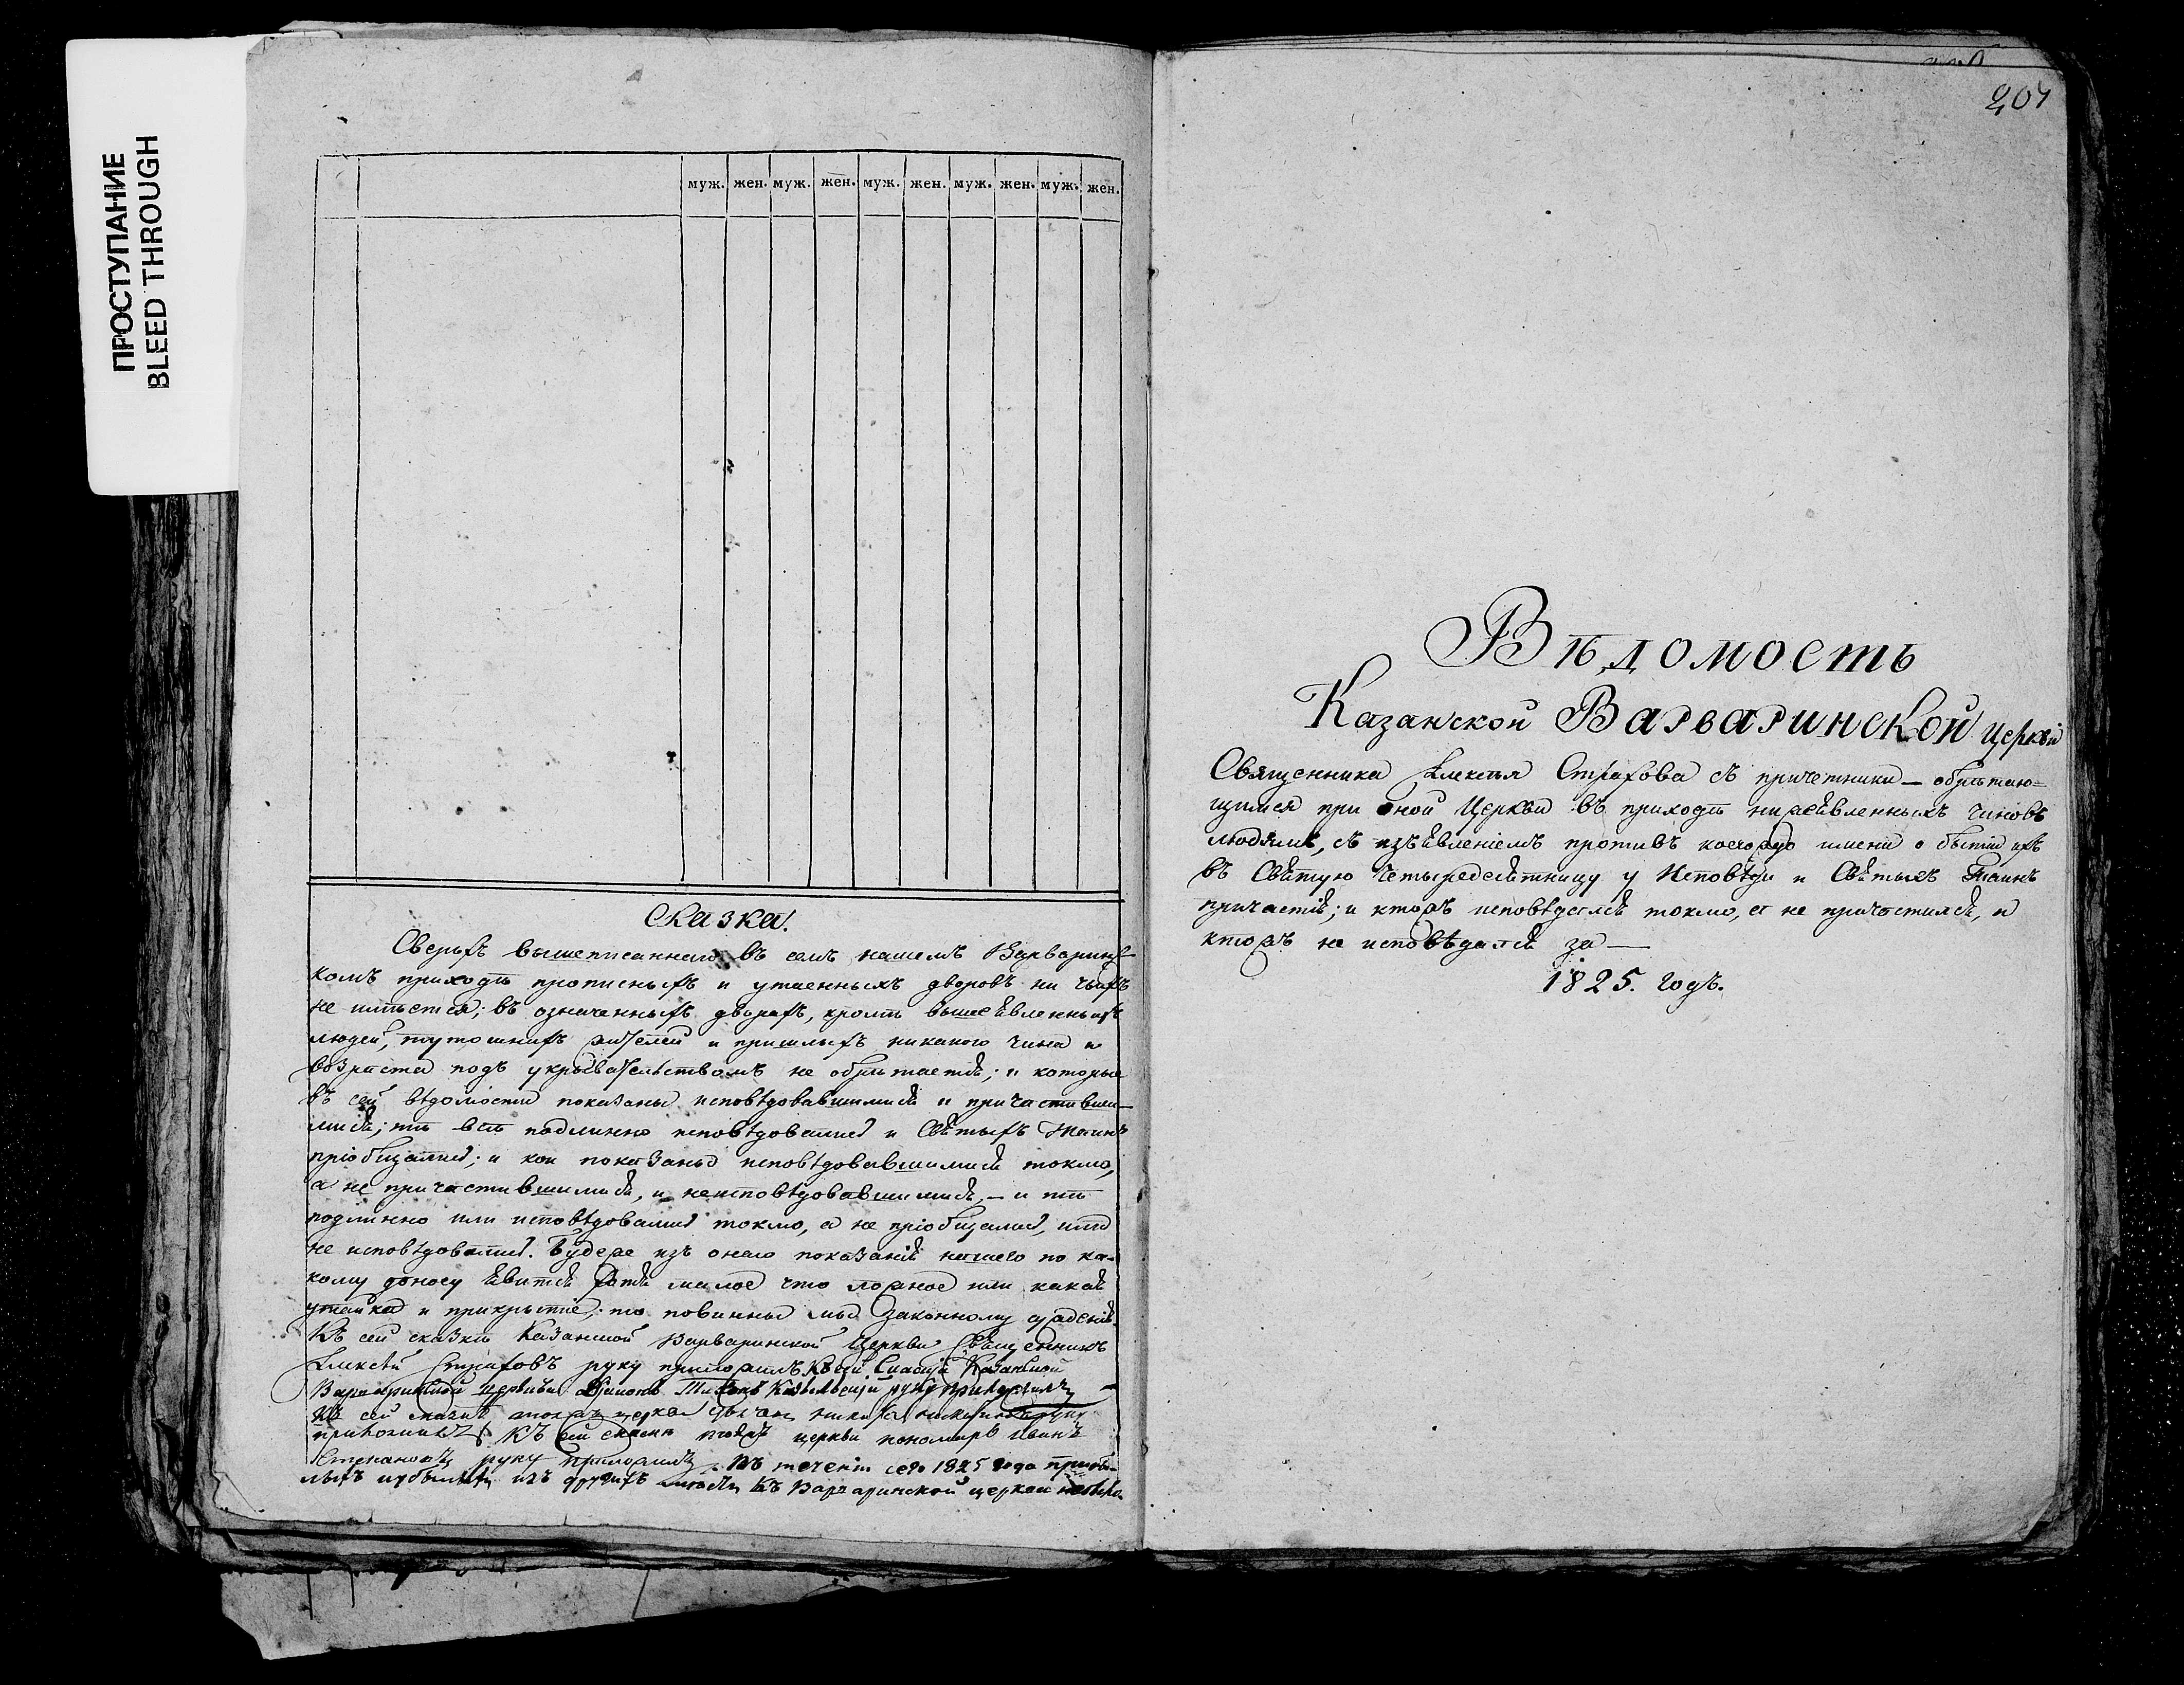 ПРОСТУПАНИЕ
BLEED THROUGH
муж. жен. муж. жен. муж. жен. муж. жен. муж. жен.
Сказка.
Сверьхъ вышеписаннаго въ семъ нашемъ Варваринс-
комъ приходѣ прописныхъ и утаенныхъ дворовъ ни чьихъ
не имѣется; въ означенныхъ дворахъ, кромѣ вышеѣвленныхъ
людей, тутошнихъ жителей и пришлыхъ никакого чина и
возраста подъ укрывательствомъ не обрѣтаетсѣ; и которые
въ сей вѣдомости показаны исповѣдовавшимисѣ и причастивши-
мисѣ; тѣ всѣ подлинно исповѣдовались и Свѣтыхъ Таинъ
пріобщались; и кои показаны исповѣдовавшимисѣ токмо,
а не причастившимисѣ, и неисповѣдовавшимисѣ, – и тѣ
подлинно или исповѣдовались токмо, а не пріобщались, или
не исповѣдовались. Будеже изъ онаго показаніѣ нашего по ка-
кому доносу ѣвитсѣ хотѣ малое что ложное или какаѣ
утайка и прикрытіе, то повинны мы законному сужденію.
Къ сей сказкѣ Казанской Варваринской Церкви Свѣщенникъ
Алексѣй Страховъ руку приложилъ Къ сей Казанской
Варваринской церкви руку приложилъ
Къ сей сказкѣ тояжъ церкви
приложилъ Къ сей тояжъ церкви пономарь Иванъ
Степановъ руку приложилъ. Въ теченіи сего 1825 года прибы-
лыхъ изъ другихъ къ Варваринской церкви
207
Вѣдомость
Казанской Варваринской церкви
Священника Алексѣя Страхова съ причетники – обрѣтаю=
щимся при оной Церкви въ приходѣ нижеѣвленныхъ чиновъ
людямъ, съ изъѣвленіемъ противъ коегождо имени о бытіи ихъ
въ Свѣтую Четыредесѣтницу у Исповѣди и Свѣтыхъ Таинъ
причастіѣ; и ктожъ исповѣдалсѣ токмо, а не причастилсѣ, и
ктожъ не исповѣдалсѣ за –
1825. годъ.